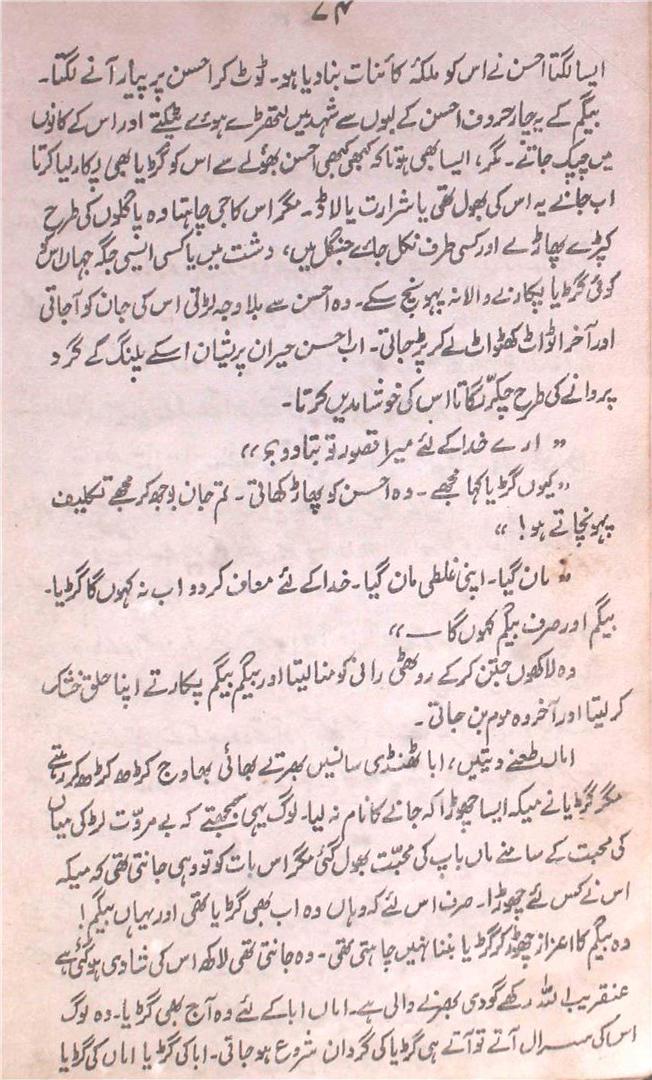 ۷۴
ایسا لگتا احسن نے اس کو ملکۂ کائنات بنا دیا ہو۔ ٹوٹ کر احسن پر پیار آنے لگتا۔
بیگم کے یہ چار حروف احسن کے لبوں سے شہد میں لتھڑے ہوئے ٹپکتے اور اس کے کانوں
میں چپک جاتے۔ مگر، ایسا بھی ہوتا کہ کبھی کبھی احسن بھولے سے اس کو گڑیا بھی پکار لیا کرتا
اب جانے یہ اس کی بھول تھی یا شرارت یا لاڈ۔ مگر اس کا جی چاہتا وہ پاگلوں کی طرح
کپڑے پھاڑ لے اور کسی طرف نکل جائے جنگل میں، دشت میں یا کسی ایسی جگہ جہاں اس کو
کوئی گڑیا پکارنے والا نہ پہونچ سکے۔ وہ احسن سے بلا وجہ لڑتی اس کی جان کو آجاتی
اور آخر انواٹ کھٹواٹ لے کر پڑ جاتی۔ اب احسن حیران پریشان اسکے پلنگ کے گرد
پروانے کی طرح چکر لگاتا اس کی خوشامدیں کرتا۔
” ارے خدا کے لئے میرا قصور تو بتا دو؟ “
” کیوں گڑیا کہا مجھے۔ وہ احسن کو پھاڑ کھاتی۔ تم جان بوجھ کر مجھے تکلیف
پہونچاتے ہو! “
” مان گیا۔ اپنی غلطی مان گیا۔ خدا کے لئے معاف کر دو اب نہ کہوں گا گڑیا۔
بیگم اور صرف بیگم کہوں گا — “
وہ لاکھوں جتن کر کے روٹھی رانی کو منا لیتا اور بیگم بیگم پکارتے اپنا حلق خشک
کر لیتا اور آخر وہ موم بن جاتی۔
اماں طعنے دیتیں، ابا ٹھنڈی سانسیں بھرتے بھائی بھاوج کڑھ کڑھ کر رہتے
مگر گڑیا نے میکہ ایسا چھوڑا کہ جانے کا نام نہ لیا۔ لوگ یہی سمجھتے کہ بے مروّت لڑکی میاں
کی محبت کے سامنے ماں باپ کی محبّت بھول گئی مگر اس بات کو تو وہی جانتی تھی کہ میکہ
اس نے کس لئے چھوڑا۔ صرف اس لئے کہ وہاں وہ اب بھی گڑیا تھی اور یہاں بیگم!
وہ بیگم کا اعزاز چھوڑ کر گڑیا بننا نہیں چاہتی تھی۔ وہ جانتی تھی لاکھ اس کی شادی ہو گئی ہے
عنقریب اللہ رکھے گودی بھرنے والی ہے۔ اماں ابا کے لئے وہ آج بھی گڑیا۔ وہ لوگ
اس کی سسرال آتے تو آتے ہی گڑیا کی گردان شروع ہو جاتی۔ ابا کی گڑیا اماں کی گڑیا